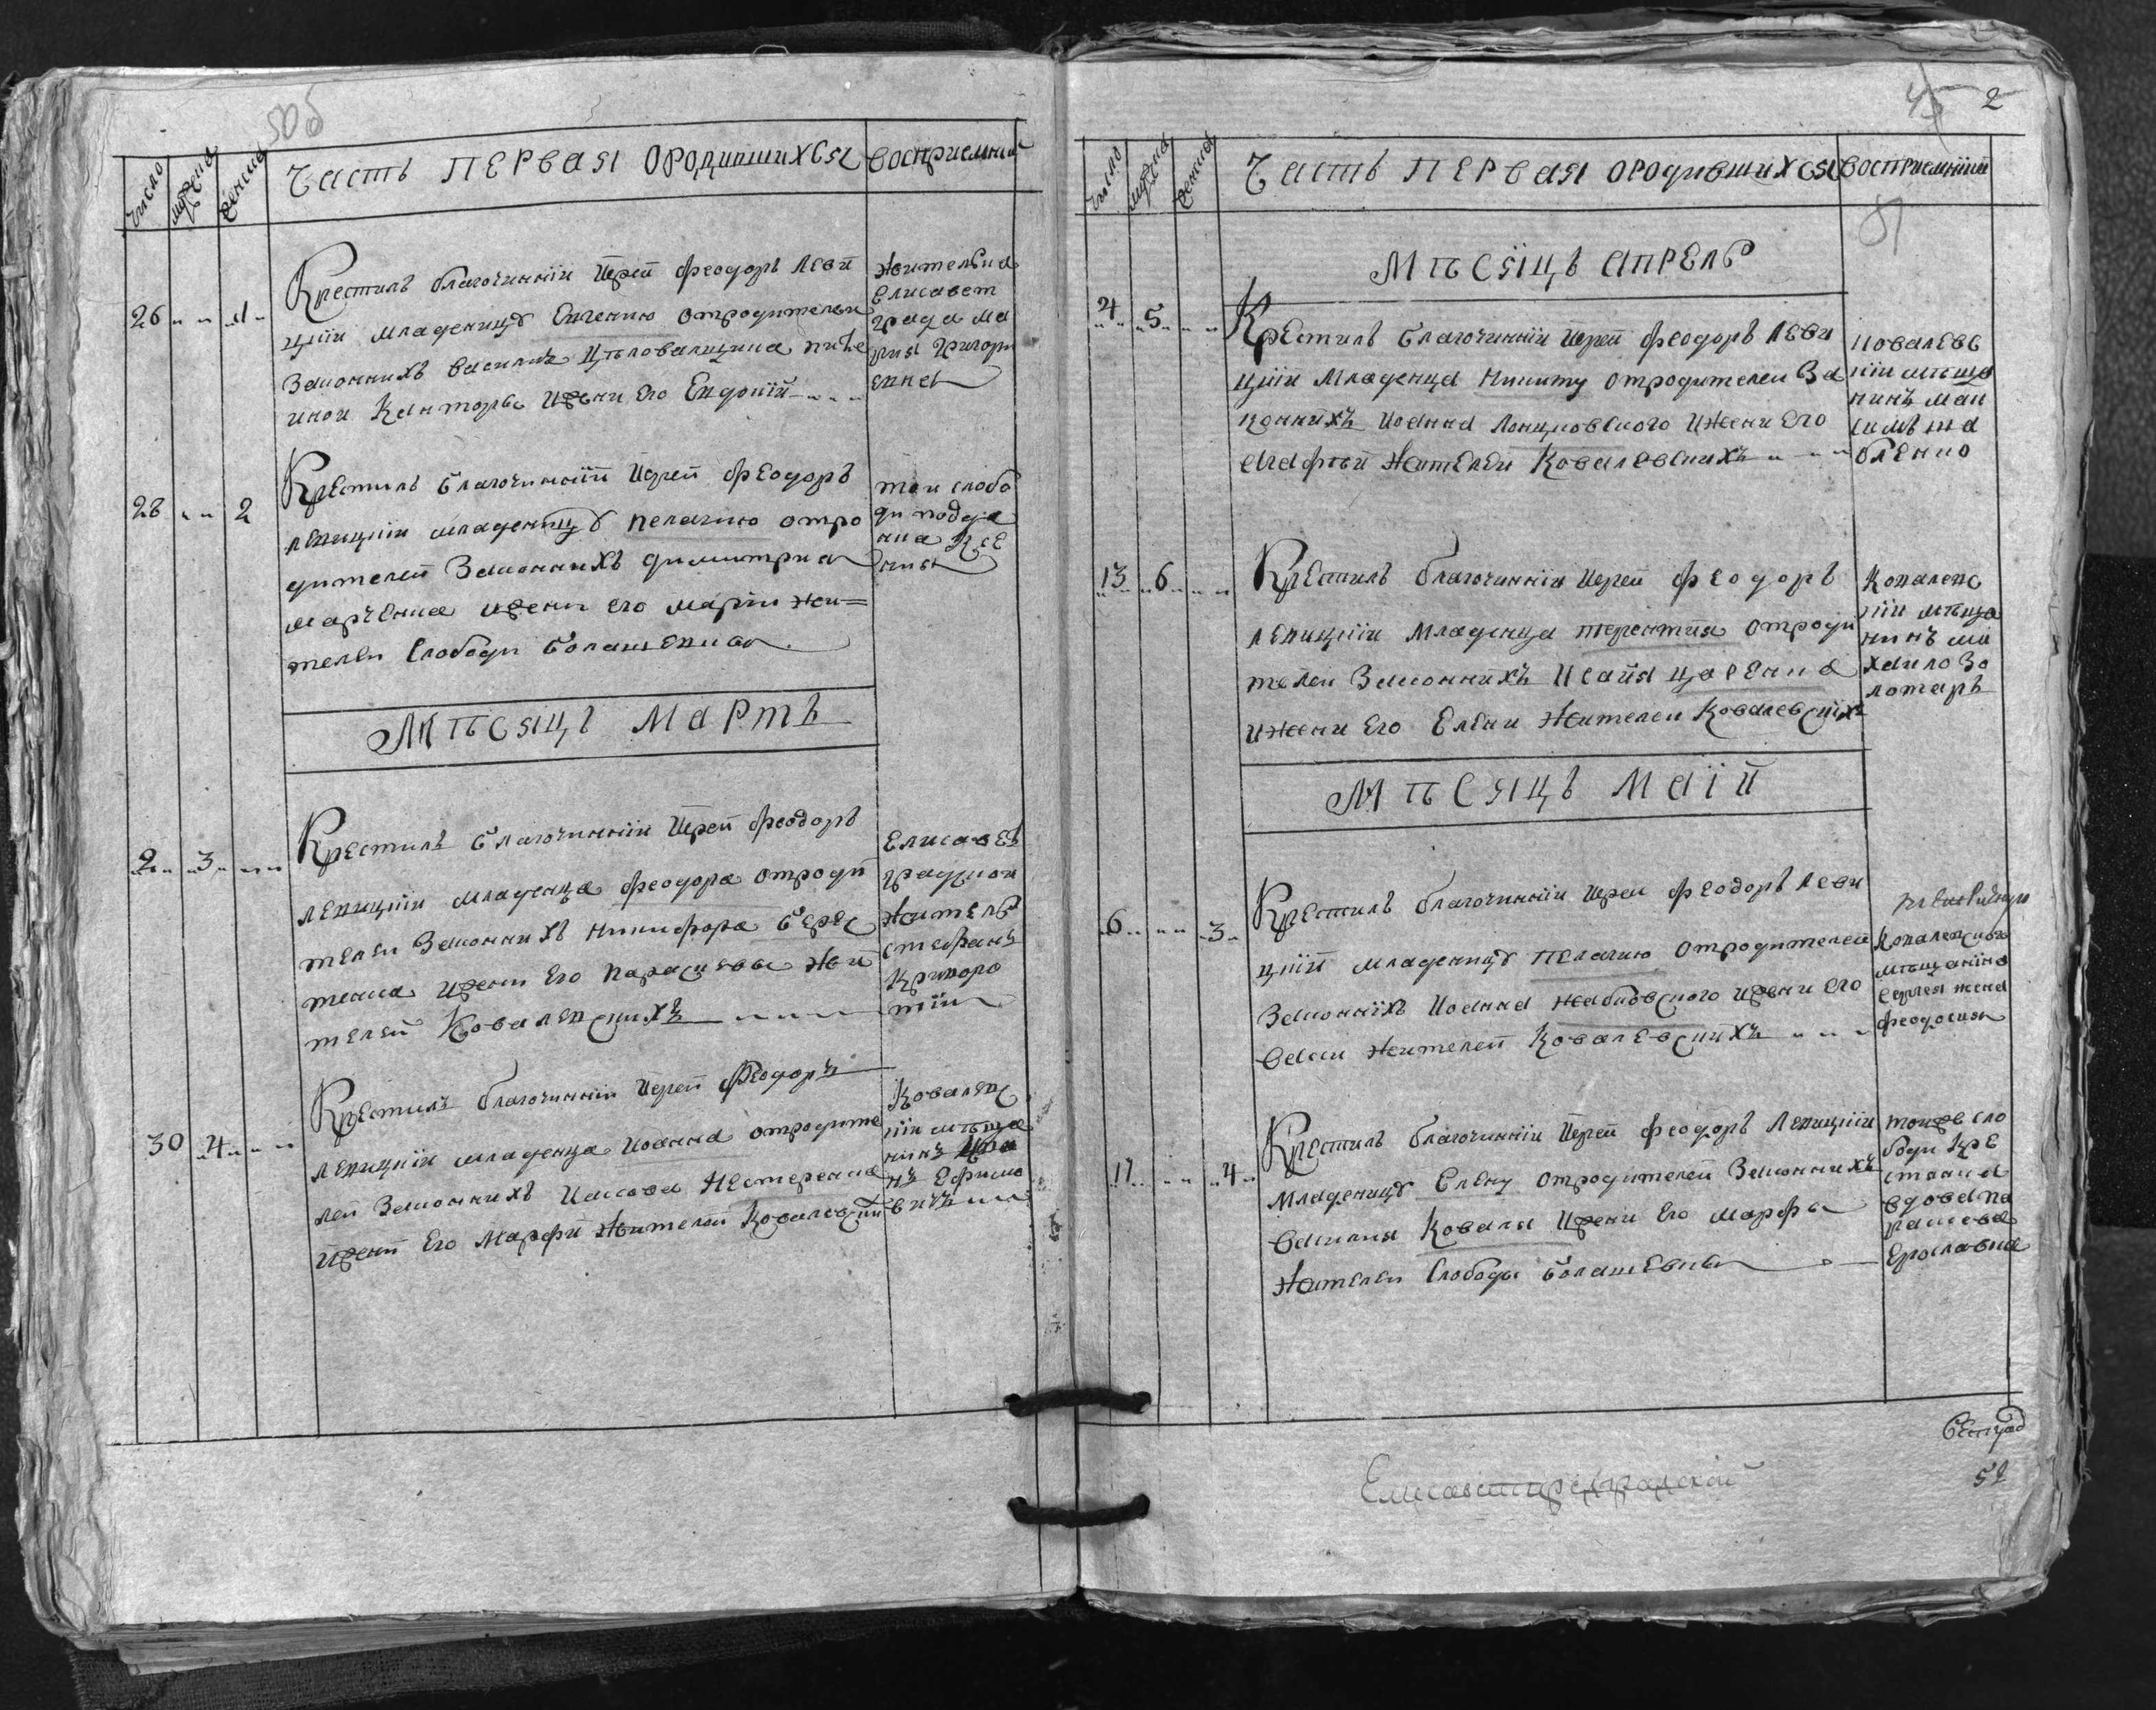 50об
число
мужеска
женска
Часть первая ородившихся
восприемники
26 1
Крестилъ благочинній Іерей феодоръ Леви
цкій младеницу Евгению отродителей
Законнихъ василия Целовалника пите
иной Канторы ижени его Евдокій
жителька
Елисавет
града Ма
рия Григори
евна
28 2
Крестилъ благочинній Іерей феодоръ
левицкій младеницу пелагию отро
дителей Законнихъ димитрия
марченка ижени его марїи жи=
телей Слободи болашевки
тои слобо
ди подда
ная Ксе
ния
Мѣсяцъ Мартъ
2 3
Крестилъ благочинній Іерей феодоръ
левицкій младенца феодора отроди
телей Законнихъ никифора берес
тенка ижени его параскевы жи
телей Ковалевскихъ
Елисавет
градской
житель
стефанъ
Криворо
тїи
30 4
Крестилъ благочинній Іерей феодоръ
левицкій младенца Иоанна отродите
лей Законнихъ Иакова Нестеренка
ижени его Марфи жителей Ковалевски
Ковалевс
кїи мѣща
нинъ
нъ Ефимо
вичъ
45 2
число
мужеска
женска
Часть первая ородившихся
восприемники
51
Мѣсяцъ апрель
4 5
Крестилъ благочинній Іерей феодоръ леви
цкїи младенца никиту отродителей За
конныхъ Иоанна Лонцковского ижени его
агафїи жителей Ковалевскихъ
Ковалевс
кїи мѣща
нинъ мак
симъ ша
бленко
13 6
Крестилъ благочинній Іерей феодоръ
левицкїи младенца терентия отроди
телей Законныхъ Исаия царенка
ижени его Елени жителей Ковалевскихъ
Ковалевс
кїи мѣща
нинъ ми
хаило Зо
лотарь
Мѣсяцъ Маїй
6 3
Крестилъ благочинній Іерей феодоръ леви
цкїй младеницу пелагию отродителей
Законнїхъ Иоанна жабковского ижени его
васи жителей Ковалевскихъ
Ковалевского
мѣщанина
сергея жена
феодосия
17 4
Крестилъ благочинній Іерей феодоръ Левицкїи
младеницу Елену отродителей Законнихъ
василия Коваля ижени его марфы
жителей Слободы болашевки
тойже сло
боди кре
стянка
вдова па
раскева
Ераславна
Елисаветградской
52